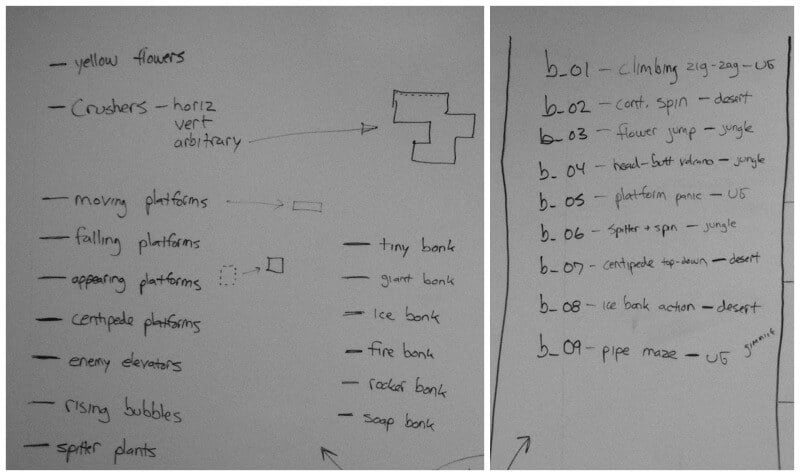 – yellow flowers
– Crushers – horiz
vert
arbitrary
– moving platforms
– falling platforms
– appearing platforms
– centipede platforms
– enemy elevators
– rising bubbles
– spitter plants
– tiny bonk
– giant bonk
– ice bonk
– fire bonk
– rocker bonk
– soap bonk
b_01 – climbing zig-zag – UG
b_02 – cont. spin – desert
b_03 – flower jump – jungle
b_04 – head-butt volcano – jungle
b_05 – platform panic – UG
b_06 – spitter + spin – jungle
b_07 – centipede top-down – desert
b_08 – ice bonk action – desert
b_09 – pipe maze – UG gimmick